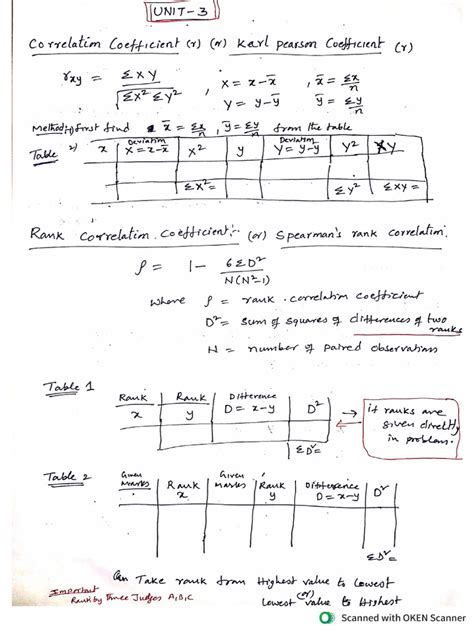 UNIT-3
Correlation Coefficient (r) (or) Karl pearson Coefficient (r)
rxy = ΣXY / √(ΣX² ΣY²) , X = x-x̄ , x̄ = Σx/n
Y = y-ȳ ȳ = Σy/n
Method:- 1) first find x̄ = Σx/n , ȳ = Σy/n from the table
Table 2) x | Deviation X = x-x̄ | X² | y | Deviation Y = y-ȳ | Y² | XY
ΣX²= ΣY² ΣXY =
Rank Correlation Coefficient:- (or) Spearman's rank correlation.
ρ = 1 - 6ΣD² / N(N²-1)
where ρ = rank correlation coefficient
D² = sum of squares of differences of two ranks
N = number of paired observations
Table 1
Rank x | Rank y | Difference D = x-y | D²
→ if ranks are given directly in problem.
ΣD²=
Table 2
Given Marks | Rank x | Given Marks | Rank y | Difference D = x-y | D²
ΣD²=
Can Take rank from Highest value to Lowest
(or)
Lowest value to Highest
Important
Rank by three Judges A,B,C
Scanned with OKEN Scanner